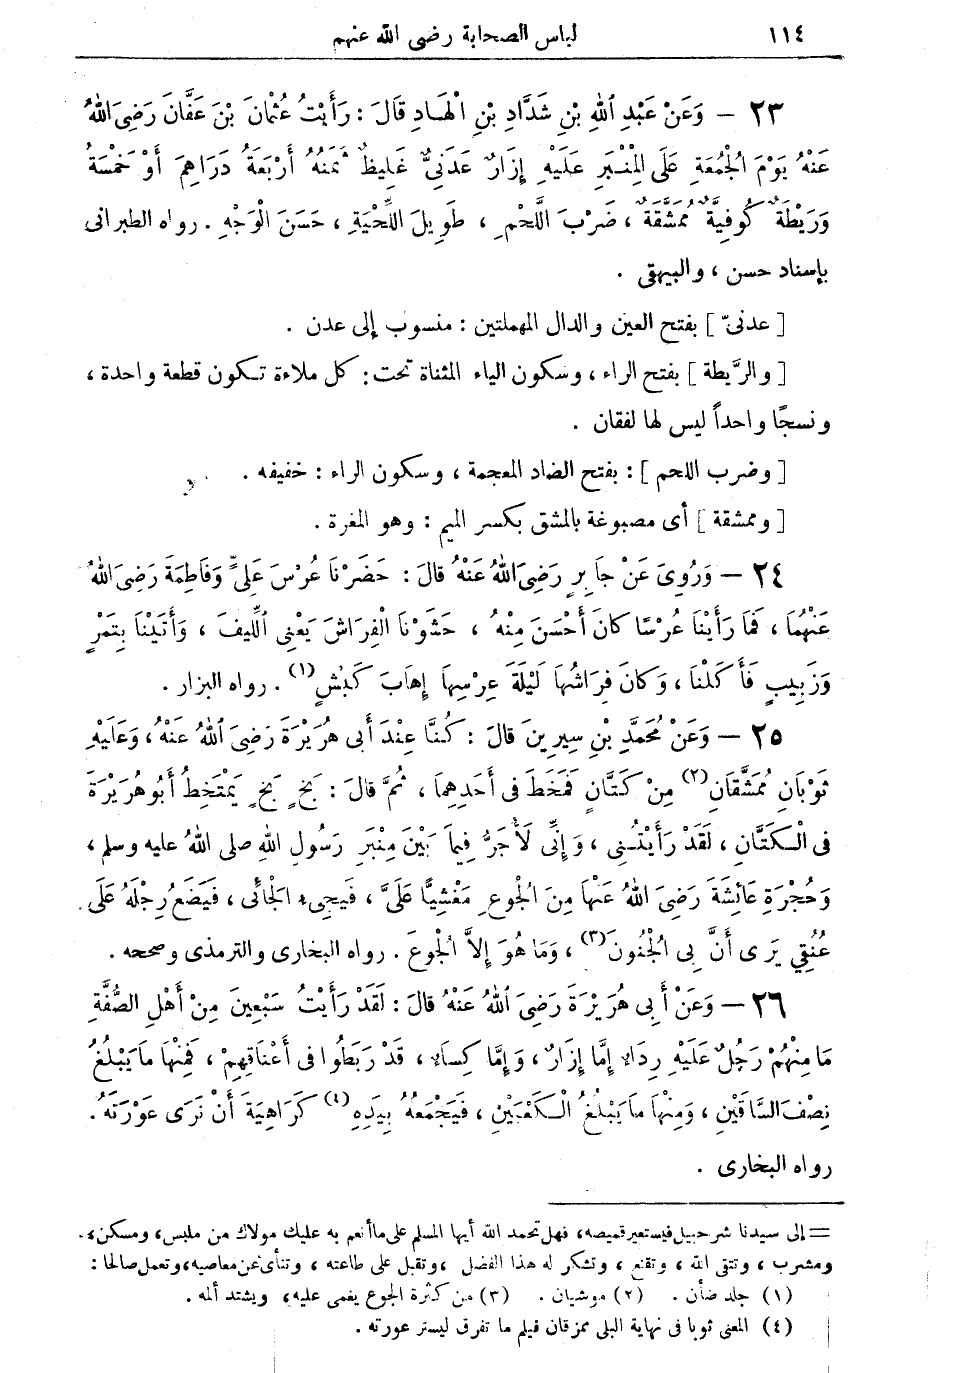 ١١٤ لباس الصحابة رضى الله عنهم
٢٣ – وَعَنْ عَبْدِ اللهِ بْنِ شَدَّادِ بْنِ الْهَادِ قَالَ : رَأَيْتُ عُثْمَانَ بْنَ عَفَّانَ رَضِىَ اللهُ
عَنْهُ يَوْمَ الْجُمُعَةِ عَلَى الْمِنْبَرِ عَلَيْهِ إِزَارٌ عَدَنِىٌّ غَلِيظٌ ثَمَنُهُ أَرْبَعَةُ دَرَاهِمَ أَوْ خَمْسَةُ
وَرَيْطَةٌ كُوفِيَّةٌ مُمَشَّقَةٌ ، ضَرْبَ اللَّحْمِ ، طَوِيلَ اللِّحْيَةِ ، حَسَنَ الْوَجْهِ . رواه الطبرانى
بإسناد حسن ، والبيهقى .
[ عدنىّ ] بفتح العين والدال المهملتين : منسوب إلى عدن .
[ والرَّيطة ] بفتح الراء ، وسكون الياء المثناة تحت : كل ملاءة تكون قطعة واحدة ،
ونسجًا واحداً ليس لها لفقان .
[ وضرب اللحم ] : بفتح الضاد المعجمة ، وسكون الراء : خفيفه .
[ وممشقة ] أى مصبوغة بالمشق بكسر الميم : وهو المغرة .
٢٤ – وَرُوِىَ عَنْ جَابِرٍ رَضِىَ اللهُ عَنْهُ قَالَ : حَضَرْنَا عُرْسَ عَلِىٍّ وَفَاطِمَةَ رَضِىَ اللهُ
عَنْهُمَا ، فَمَا رَأَيْنَا عُرْسًا كَانَ أَحْسَنَ مِنْهُ ، حَشَوْنَا الْفِرَاشَ يَعْنِى اللِّيفَ ، وَأَتَيْنَا بِتَمْرٍ
وَزَبِيبٍ فَأَكَلْنَا ، وَكَانَ فِرَاشُهَا لَيْلَةَ عِرْسِهَا إِهَابَ كَبْشٍ(١) . رواه البزار .
٢٥ – وَعَنْ مُحَمَّدِ بْنِ سِيرِينَ قَالَ : كُنَّا عِنْدَ أَبِى هُرَيْرَةَ رَضِىَ اللهُ عَنْهُ ، وَعَلَيْهِ
ثَوْبَانِ مُمَشَّقَانِ(٢) مِنْ كَتَّانٍ فَمَخَطَ فِى أَحَدِهِمَا ، ثُمَّ قَالَ : بَخٍ بَخٍ يَمْتَخِطُ أَبُو هُرَيْرَةَ
فِى الْكَتَّانِ ، لَقَدْ رَأَيْتُنِى ، وَإِنِّى لَأَجَرُّ فِيمَا بَيْنَ مِنْبَرِ رَسُولِ اللهِ صلى اللهُ عليه وسلم ،
وَحُجْرَةِ عَائِشَةَ رَضِىَ اللهُ عَنْهَا مِنَ الْجُوعِ مَغْشِيًّا عَلَىَّ ، فَيَجِىءُ الْجَائِى ، فَيَضَعُ رِجْلَهُ عَلَى
عُنُقِي يَرَى أَنَّ بِىَ الْجُنُونَ(٣) ، وَمَا هُوَ إِلاَّ الْجُوعَ . رواه البخارى والترمذى وصححه .
٢٦ – وَعَنْ أَبِى هُرَيْرَةَ رَضِىَ اللهُ عَنْهُ قَالَ : لَقَدْ رَأَيْتُ سَبْعِينَ مِنْ أَهْلِ الصُّفَّةِ
مَا مِنْهُمْ رَجُلٌ عَلَيْهِ رِدَاءٌ إِمَّا إِزَارٌ ، وَإِمَّا كِسَاءٌ ، قَدْ رَبَطُوا فِى أَعْنَاقِهِمْ ، فَمِنْهَا مَا يَبْلُغُ
نِصْفَ السَّاقَيْنِ ، وَمِنْهَا مَا يَبْلُغُ الْكَعْبَيْنِ ، فَيَجْمَعُهُ بِيَدِهِ(٤) كَرَاهِيَةَ أَنْ تَرَى عَوْرَتَهُ .
رواه البخارى .
= إلى سيدنا شرحبيل فيستعير قميصه ، فهل تحمد الله أيها المسلم على ما أنعم به عليك مولاك من ملبس ، ومسكن ،
ومشرب ، وتتقى الله ، وتقنع ، وتشكر له هذا الفضل ، وتقبل على طاعته ، وتنأى عن معاصيه ، وتعمل صالحا :
(١) جلد ضأن . (٢) موشيان . (٣) من كثرة الجوع يغمى عليه ، ويشتد ألمه .
(٤) المعنى ثوبا فى نهاية البلى ممزقان فيلم ما تفرق ليستر عورته .